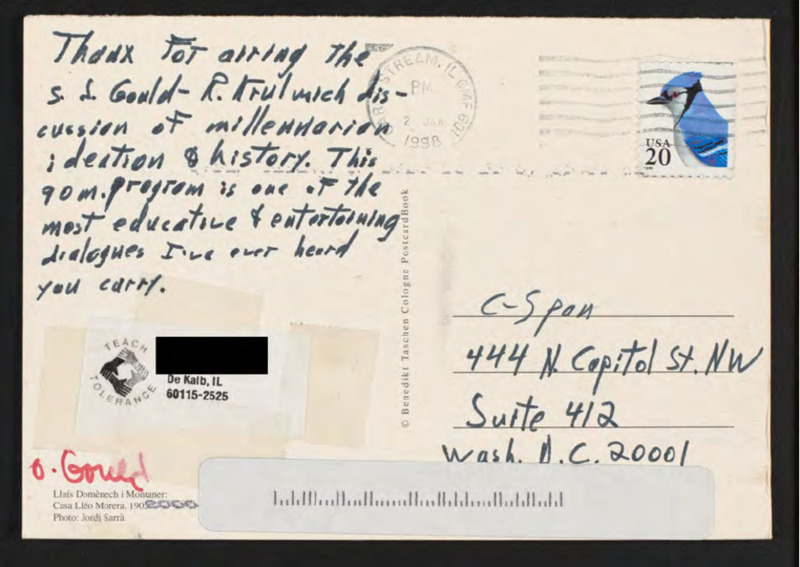 Thanx for airing the
S. J. Gould - R. Krulwich dis-
cussion of millennarian
ideation & history. This
90 m. program is one of the
most educative & entertaining
dialogues I've ever heard
you carry.
STREAM, IL GMF 601
PM
2 JAN
1998
USA
20
© Benedikt Taschen Cologne PostcardBook
C-Span
444 N. Capitol St. NW
Suite 412
Wash. D.C. 20001
TEACH
TOLERANCE
De Kalb, IL
60115-2525
Gould
Lluís Domènech i Montaner:
Casa Lléo Morera, 1905
Photo: Jordi Sarrà